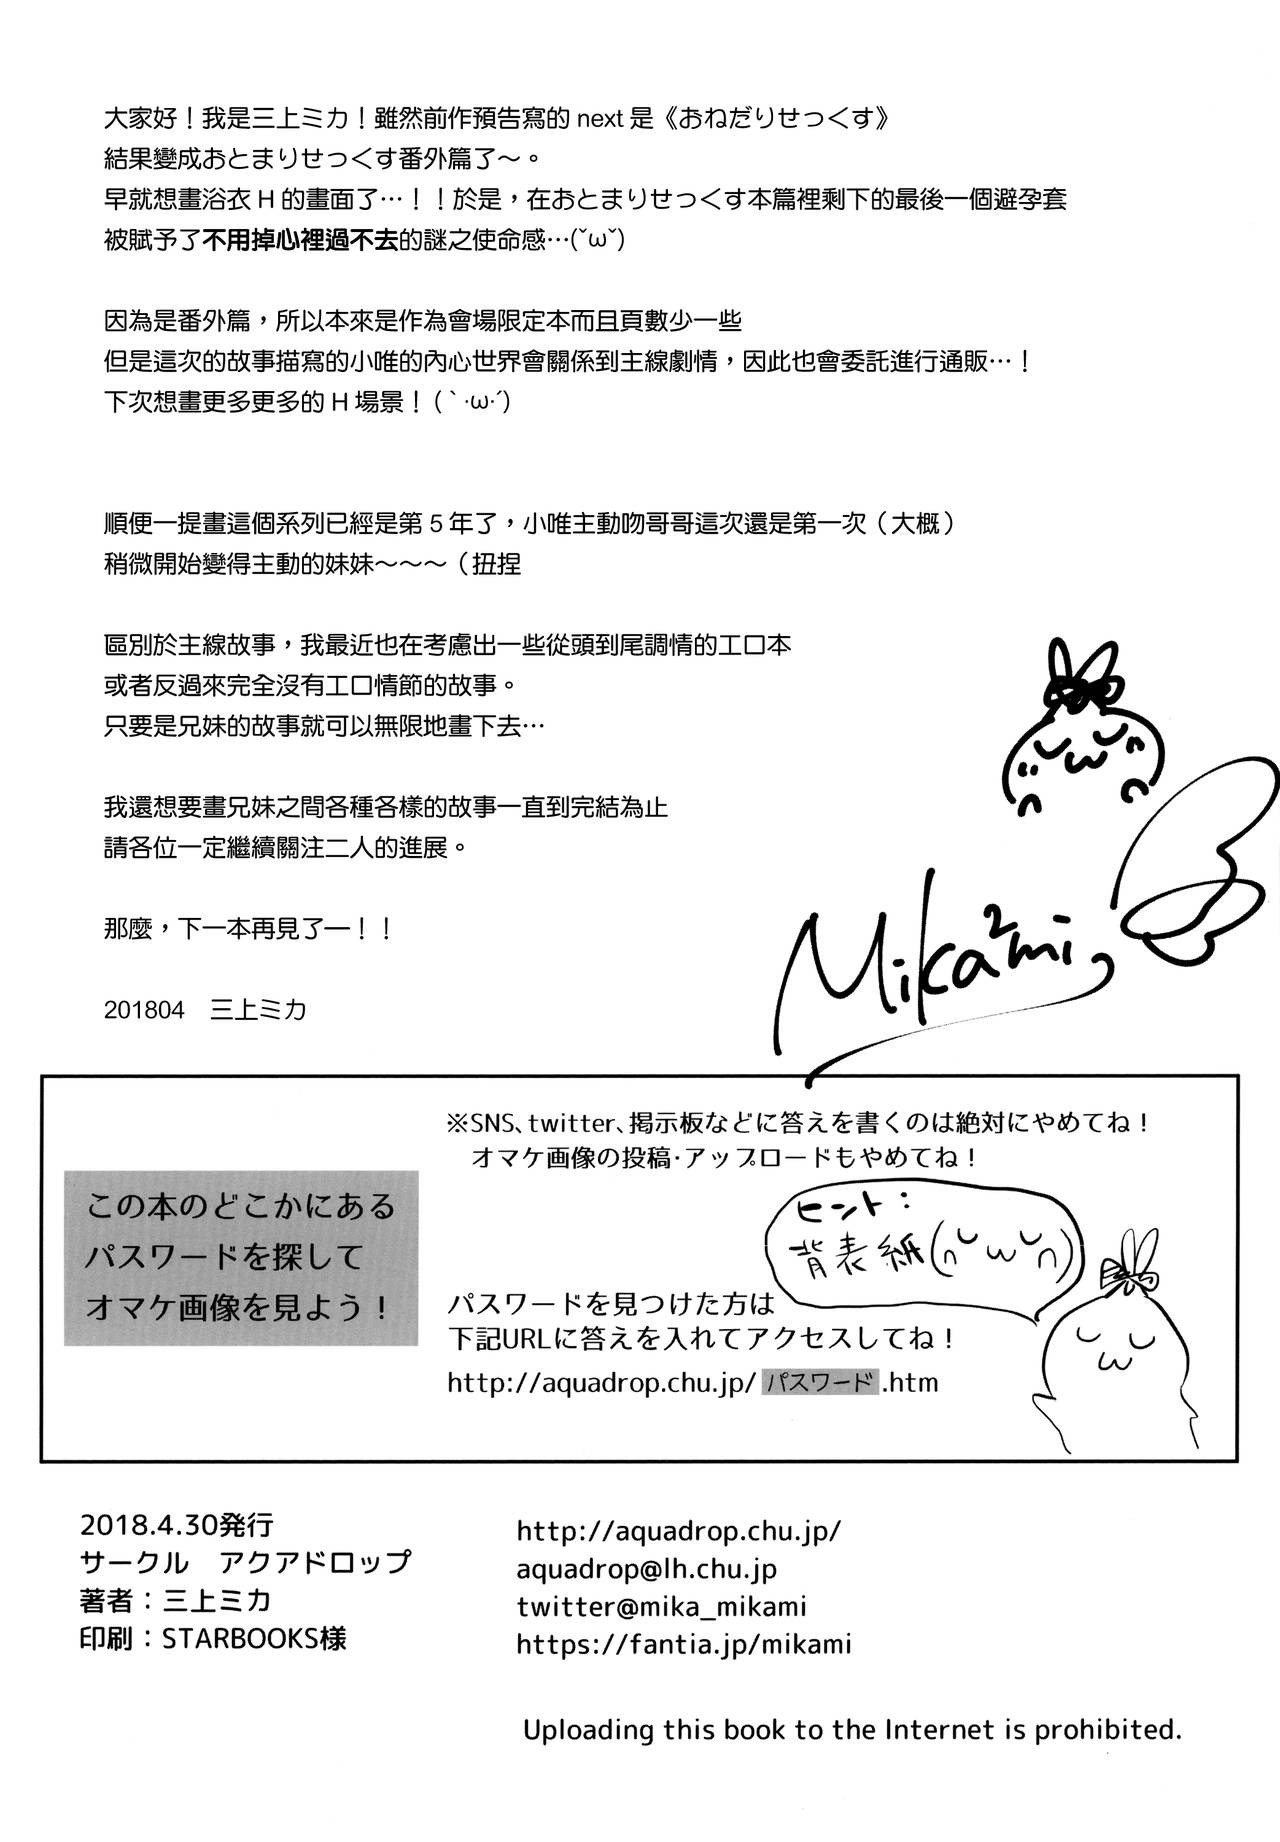 大家好！我是三上ミカ！雖然前作預告寫的 next 是《おねだりせっくす》
結果變成おとまりせっくす番外篇了～。
早就想畫浴衣 H 的畫面了…！！於是，在おとまりせっくす本篇裡剩下的最後一個避孕套
被賦予了不用掉心裡過不去的謎之使命感…(˘ω˘)
因為是番外篇，所以本來是作為會場限定本而且頁數少一些
但是這次的故事描寫的小唯的內心世界會關係到主線劇情，因此也會委託進行通販…！
下次想畫更多更多的 H 場景！(｀･ω･´)
順便一提畫這個系列已經是第 5 年了，小唯主動吻哥哥這次還是第一次（大概）
稍微開始變得主動的妹妹～～～（扭捏
區別於主線故事，我最近也在考慮出一些從頭到尾調情的工口本
或者反過來完全沒有工口情節的故事。
只要是兄妹的故事就可以無限地畫下去…
我還想要畫兄妹之間各種各樣的故事一直到完結為止
請各位一定繼續關注二人的進展。
那麼，下一本再見了ー！！
201804　三上ミカ
Mika²mi
※SNS、twitter、掲示板などに答えを書くのは絶対にやめてね！
オマケ画像の投稿・アップロードもやめてね！
この本のどこかにある
パスワードを探して
オマケ画像を見よう！
ヒント：
背表紙
パスワードを見つけた方は
下記URLに答えを入れてアクセスしてね！
http://aquadrop.chu.jp/ パスワード .htm
2018.4.30発行
サークル　アクアドロップ
著者：三上ミカ
印刷：STARBOOKS様
http://aquadrop.chu.jp/
aquadrop@lh.chu.jp
twitter@mika_mikami
https://fantia.jp/mikami
Uploading this book to the Internet is prohibited.